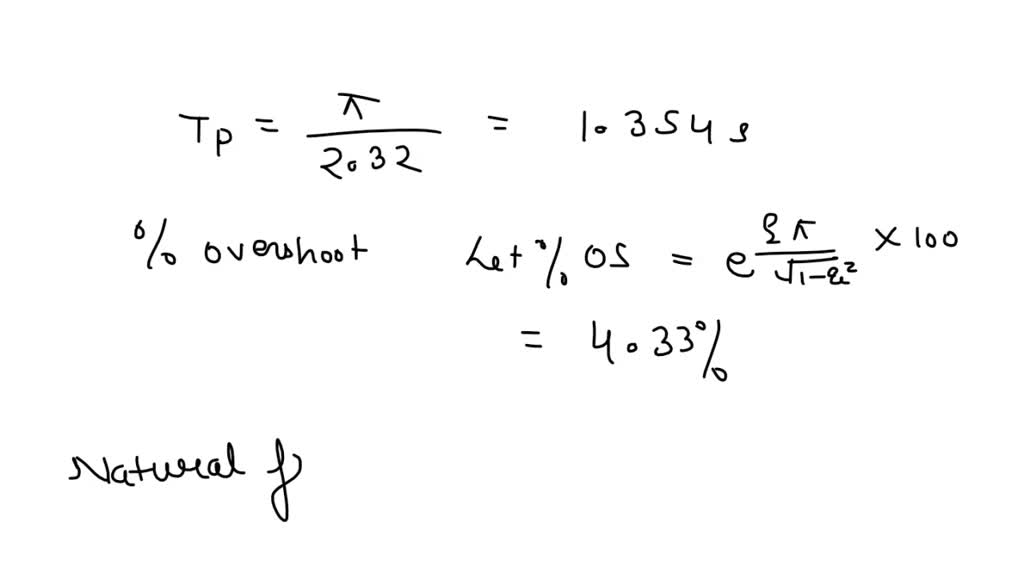 Tp = π / 2.32 = 1.354 s
% overshoot Let % OS = e^(ξπ / √1-ξ²) × 100
= 4.33%
Natural f